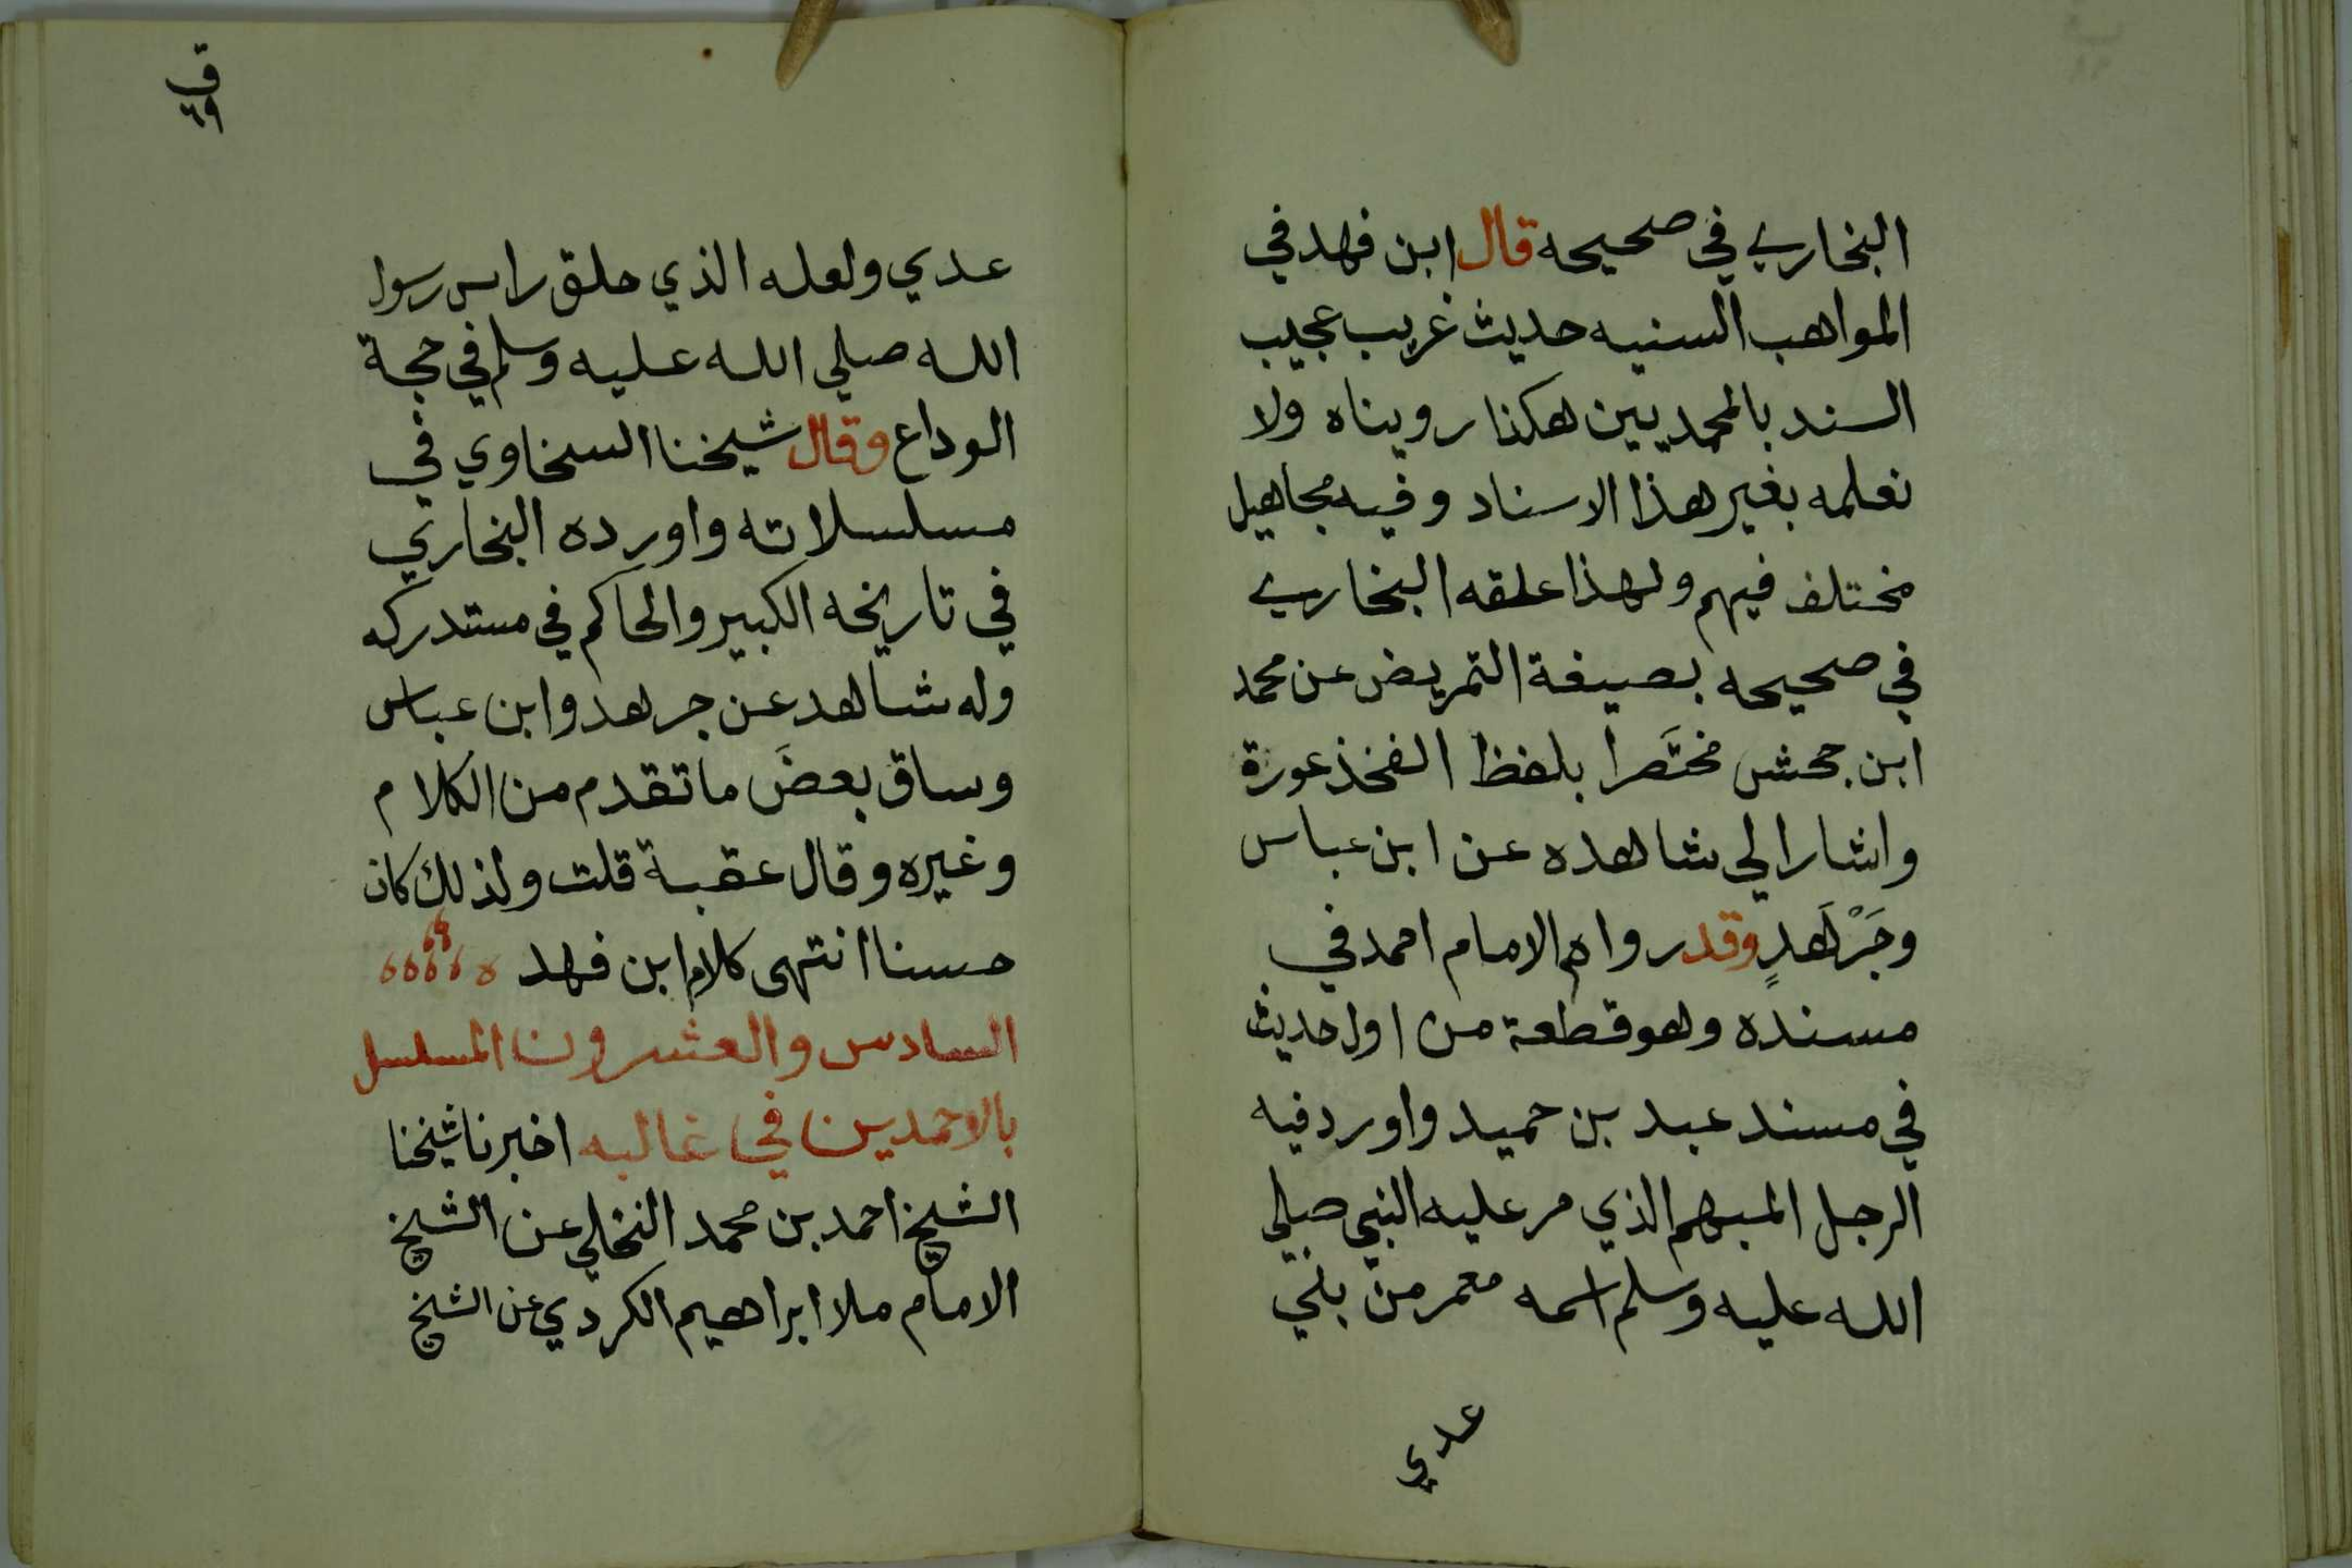 البخاري في صحيحه قال ابن فهد في
المواهب السنيه حديث غريب عجيب
السند بالمحمديين هكذا رويناه ولا
نعلمه بغير هذا الاسناد وفيه مجاهيل
مختلف فيهم ولهذا علقه البخاري
في صحيحه بصيغة التمريض عن محمد
ابن جحش مختَصرا بلفظ الفخذ عورة
واشار الي شاهده عن ابن عباس
وجَرْهَدٍ وقد رواه الامام احمد في
مسنده وهو قطعة من اول حديث
في مسند عبد بن حميد واورد فيه
الرجل المبهم الذي مر عليه النبي صلي
الله عليه وسلم اسمه معمر من بني
عدي
ق
عدي ولعله الذي حلق راس رسول
الله صلي الله عليه وسلم في حجة
الوداع وقال شيخنا السخاوي في
مسلسلاته واورده البخاري
في تاريخه الكبير والحاكم في مستدركه
وله شاهد عن جرهد وابن عباس
وساق بعضَ ما تقدم من الكلام
وغيره وقال عقبة قلت ولذلك كان
حسنا انتهى كلام ابن فهد
السادس والعشرون المسلسل
بالاحمديين في غالبه اخبرنا شيخنا
الشيخ احمد بن محمد النخلي عن الشيخ
الامام ملا ابراهيم الكردي عن الشيخ